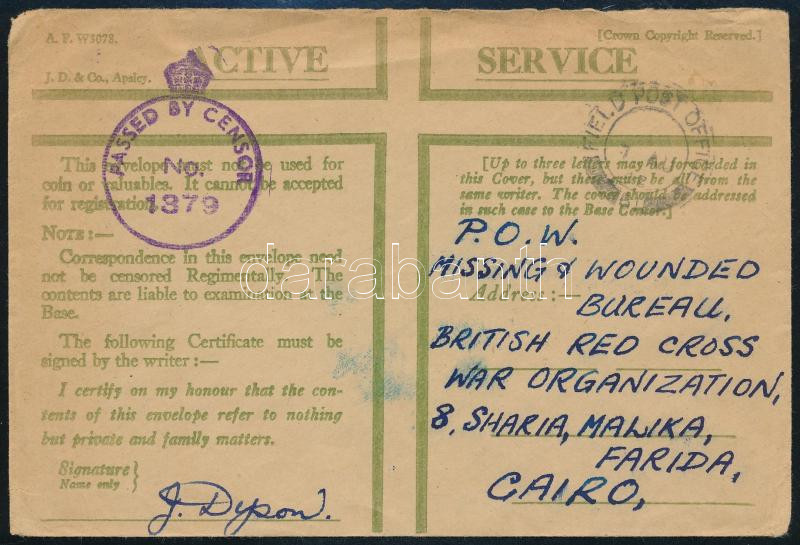 A. F. W3078.
[Crown Copyright Reserved.]
ACTIVE SERVICE
J. D. & Co., Apsley.
PASSED BY CENSOR
No.
1379
FIELD POST OFFICE
AU
This envelope must not be used for
coin or valuables. It cannot be accepted
for registration.
NOTE:—
Correspondence in this envelope need
not be censored Regimentally. The
contents are liable to examination at the
Base.
The following Certificate must be
signed by the writer:—
I certify on my honour that the con-
tents of this envelope refer to nothing
but private and family matters.
Signature
Name only
J. Dyson.
[Up to three letters may be forwarded in
this Cover, but these must be all from the
same writer. The cover should be addressed
in such case to the Base Censor.]
Address:—
P.O.W.
MISSING & WOUNDED
BUREAU,
BRITISH RED CROSS
WAR ORGANIZATION,
8, SHARIA, MALIKA,
FARIDA,
CAIRO,
darabanth